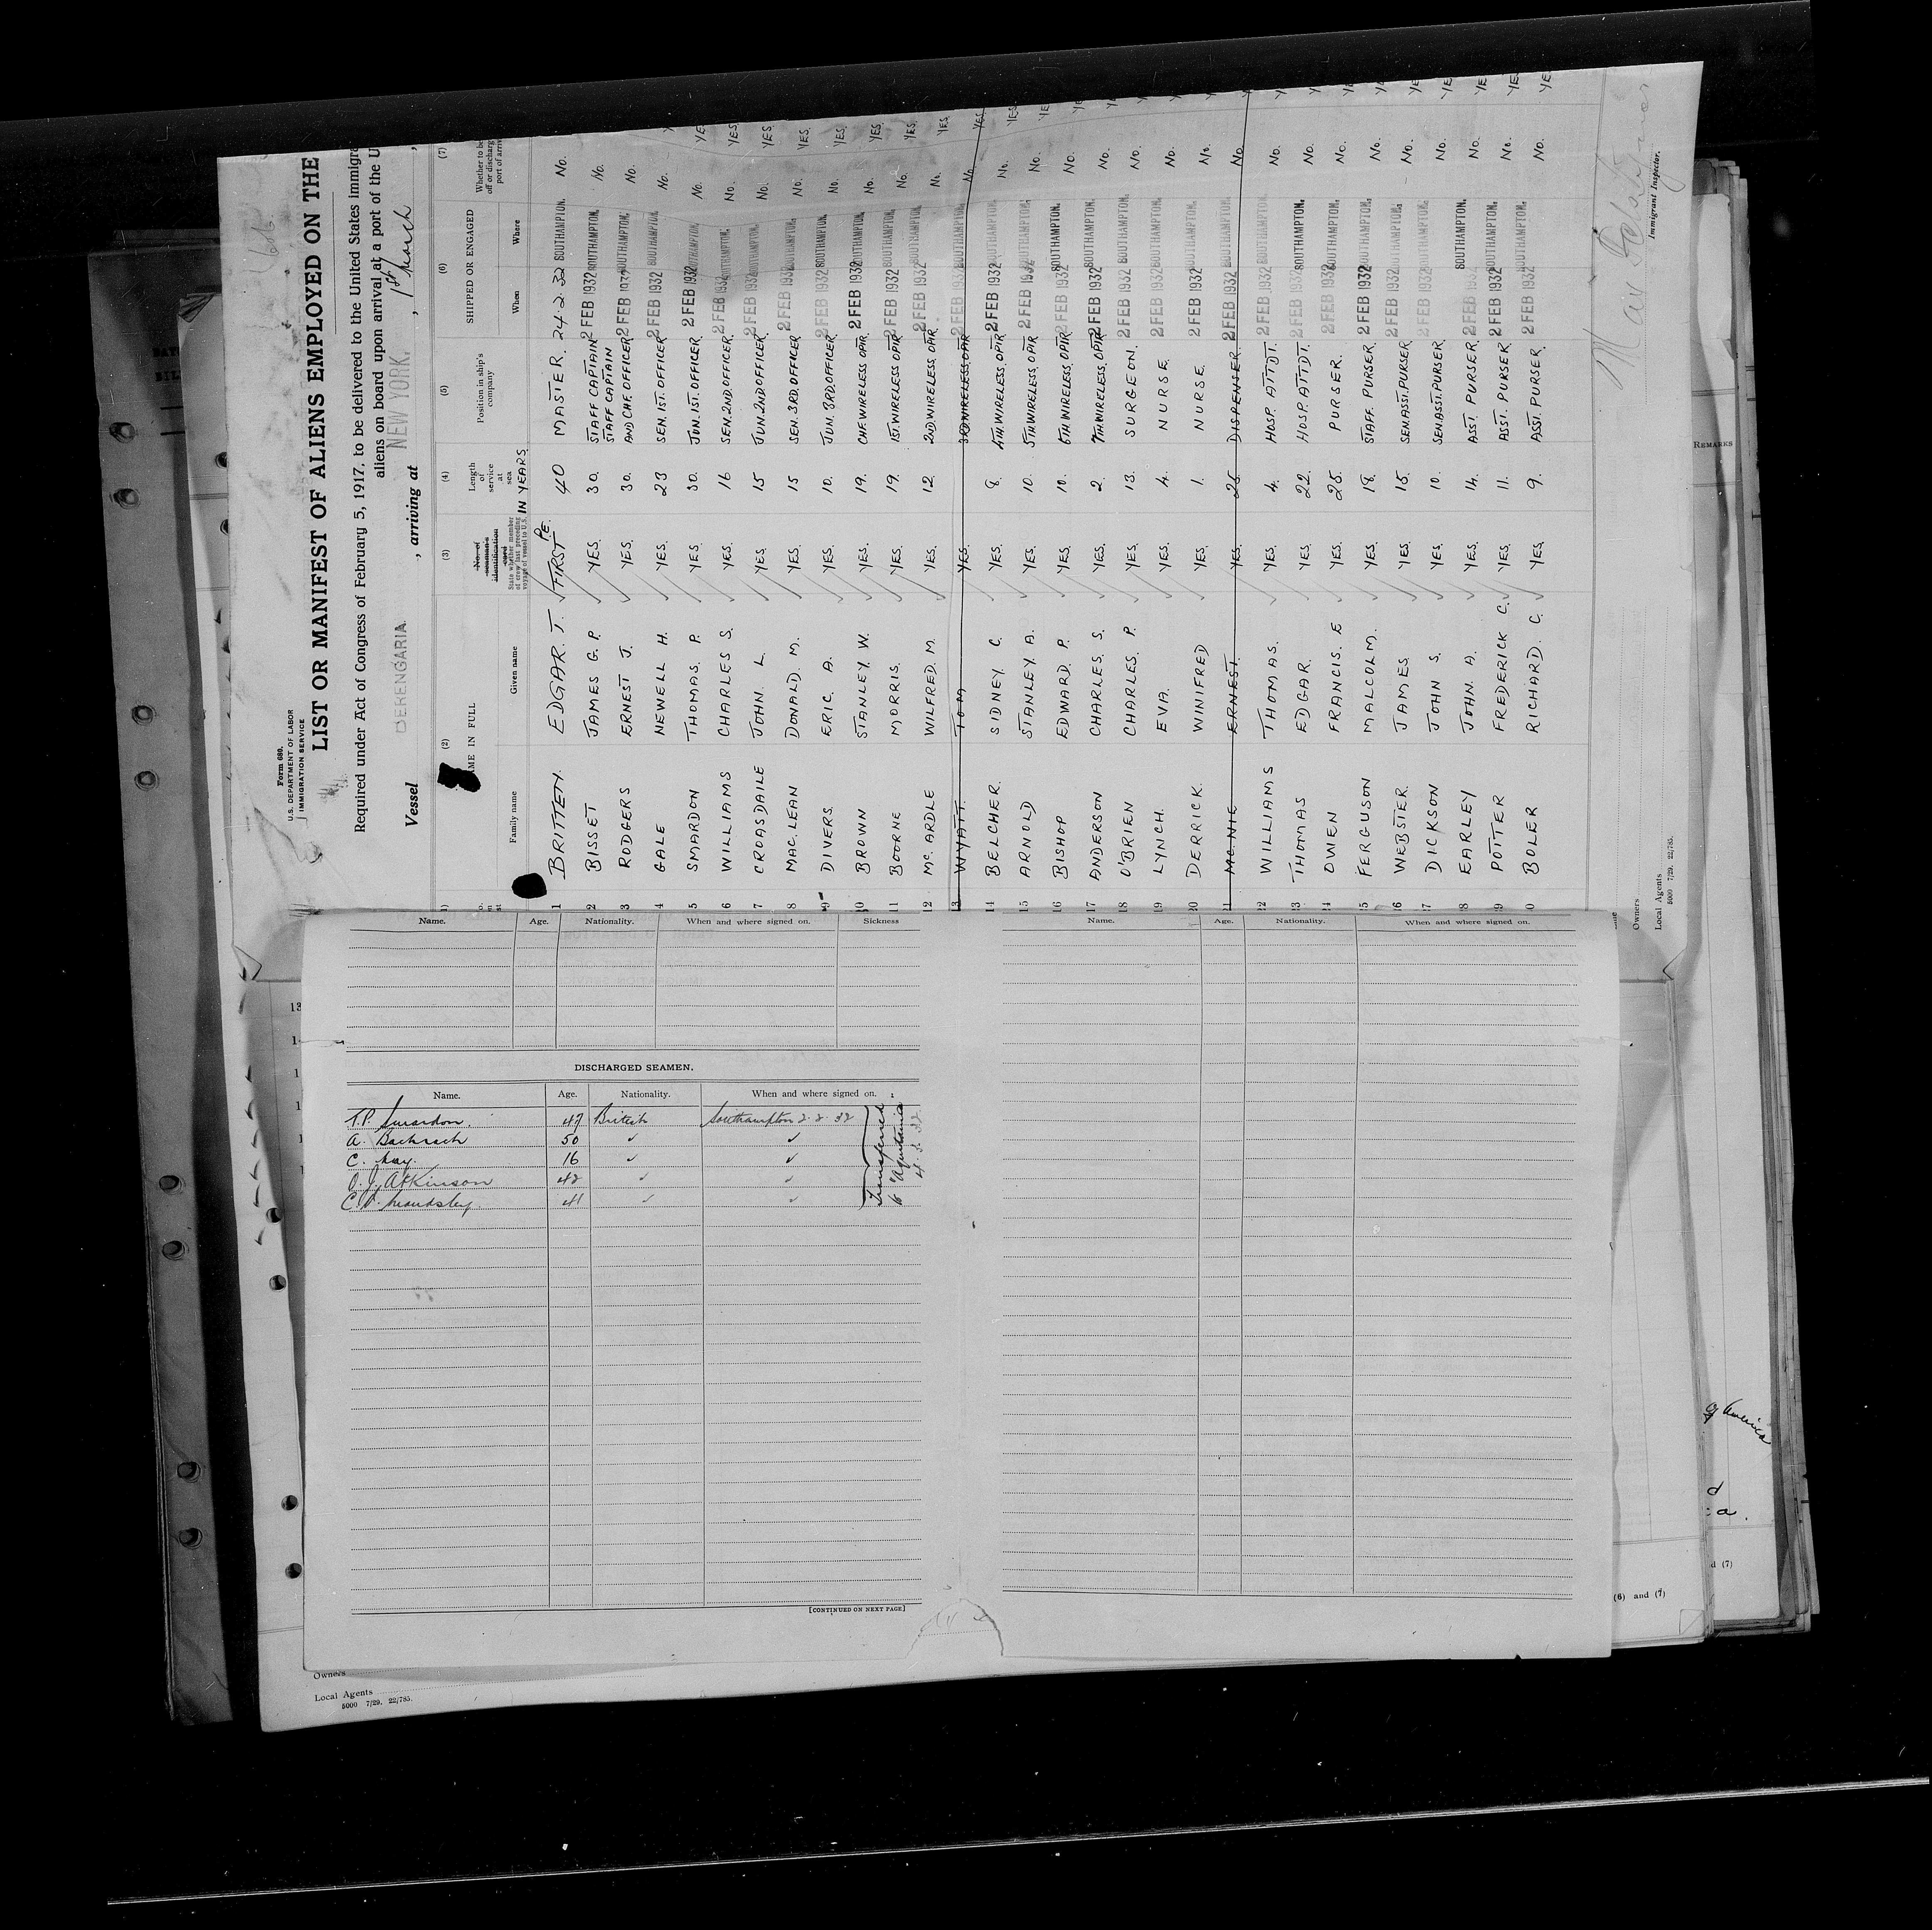 Form 680.
U.S. DEPARTMENT OF LABOR
IMMIGRATION SERVICE
LIST OR MANIFEST OF ALIENS EMPLOYED ON THE
Required under Act of Congress of February 5, 1917, to be delivered to the United States immigra
aliens on board upon arrival at a port of the U
Vessel BERENGARIA. , arriving at NEW YORK. , 1st March ,
(2) (3) (4) (5) (6) (7)
NAME IN FULL No. of seaman's identification card State whether member of crew last preceding voyage of vessel to U.S. Length of service at sea IN YEARS Position in ship's company SHIPPED OR ENGAGED Whether to be off or discharg port of arriv
Family name Given name When Where
1 BRITTEN. EDGAR. T. FIRST P.E. 40 MASTER. 24-2-32 SOUTHAMPTON. No.
2 BISSET JAMES G. P. YES. 30. STAFF CAPTAIN 2 FEB 1932 SOUTHAMPTON. No.
3 RODGERS ERNEST J. YES. 30. STAFF CAPTAIN AND CHF. OFFICER 2 FEB 1932 SOUTHAMPTON. No.
4 GALE NEWELL H. YES. 23 SEN. 1ST. OFFICER 2 FEB 1932 SOUTHAMPTON. No.
5 SMARDON THOMAS. P. YES. 30. JUN. 1ST. OFFICER 2 FEB 1932 SOUTHAMPTON. No. YES.
6 WILLIAMS CHARLES S. YES. 16 SEN. 2ND. OFFICER. 2 FEB 1932 SOUTHAMPTON. No. YES.
7 CROASDAILE JOHN L. YES. 15 JUN. 2ND OFFICER. 2 FEB 1932 SOUTHAMPTON. No. YES.
8 MAC. LEAN DONALD. M. YES. 15 SEN. 3RD. OFFICER 2 FEB 1932 SOUTHAMPTON. No. YES.
9 DIVERS. ERIC. A. YES. 10. JUN. 3RD. OFFICER. 2 FEB 1932 SOUTHAMPTON. No. YES.
10 BROWN STANLEY. W. YES. 19. CHF. WIRELESS OPTR. 2 FEB 1932 SOUTHAMPTON. No. YES.
11 BOORNE MORRIS. YES. 19. 1ST. WIRELESS. OPTR 2 FEB 1932 SOUTHAMPTON. No. YES.
12 Mc. ARDLE WILFRED. M. YES. 12. 2ND WIRELESS. OPTR 2 FEB 1932 SOUTHAMPTON. No. YES.
13 WYATT. TOM YES. 3RD WIRELESS. OPTR 2 FEB 1932 SOUTHAMPTON. No. YES.
14 BELCHER. SIDNEY. C. YES. 8. 4TH. WIRELESS. OPTR 2 FEB 1932 SOUTHAMPTON. No. YES.
15 ARNOLD STANLEY. A. YES. 10. 5TH WIRELESS, OPTR 2 FEB 1932 SOUTHAMPTON. No. YES
16 BISHOP EDWARD. P. YES. 10. 6TH WIRELESS. OPTR 2 FEB 1932 SOUTHAMPTON. No. YES
17 ANDERSON CHARLES. S. YES. 2. 7TH. WIRELESS. OPTR 2 FEB 1932 SOUTHAMPTON. No.
18 O'BRIEN CHARLES. P. YES. 13. SURGEON. 2 FEB 1932 SOUTHAMPTON. No.
19 LYNCH. EVA. YES. 4. NURSE. 2 FEB 1932 SOUTHAMPTON. No.
20 DERRICK. WINIFRED YES. 1. NURSE. 2 FEB 1932 SOUTHAMPTON. No.
21 Mc. NIE ERNEST. YES. 25. DISPENSER. 2 FEB 1932 SOUTHAMPTON. No.
22 WILLIAMS THOMAS. YES. 4. HOSP. ATTDT. 2 FEB 1932 SOUTHAMPTON. No. YE
23 THOMAS EDGAR. YES. 22. HOSP. ATTDT. 2 FEB 1932 SOUTHAMPTON. No. YE
24 OWEN FRANCIS. E YES. 25. PURSER. 2 FEB 1932 SOUTHAMPTON. No. YE
25 FERGUSON MALCOLM. YES. 18. STAFF. PURSER. 2 FEB 1932 SOUTHAMPTON. No. YE
26 WEBSTER. JAMES. YES. 15. SEN. ASST. PURSER 2 FEB 1932 SOUTHAMPTON. No. YE
27 DICKSON JOHN S. YES. 10. SEN. ASST. PURSER. 2 FEB 1932 SOUTHAMPTON. No. YE
28 EARLEY JOHN. A. YES. 14. ASST. PURSER. 2 FEB 1932 SOUTHAMPTON. No. YE
29 POTTER FREDERICK C. YES. 11. ASST. PURSER 2 FEB 1932 SOUTHAMPTON. No. YE
30 BOLER RICHARD. C. YES. 9. ASST. PURSER. 2 FEB 1932 SOUTHAMPTON. No. YE
Immigrant Inspector.
Owners
Local Agents
5000 7/29. 22/785.
REMARKS
Name. Age. Nationality. When and where signed on. Sickness
DISCHARGED SEAMEN.
Name. Age. Nationality. When and where signed on.
T.P. Smardon. 47 British Southampton 2-2-32
A. Bachrach 50 ✓ ✓
C. May. 16 ✓ ✓
O. J. Atkinson 42 ✓ ✓
C. V. Maudsley. 41 ✓ ✓
Transferred
to "Aquitania
4. 3. 32
[CONTINUED ON NEXT PAGE]
Name. Age. Nationality. When and where signed on.
Owners
Local Agents
5000 7/29. 22/785.
of America
d (7)
(6) and (7)